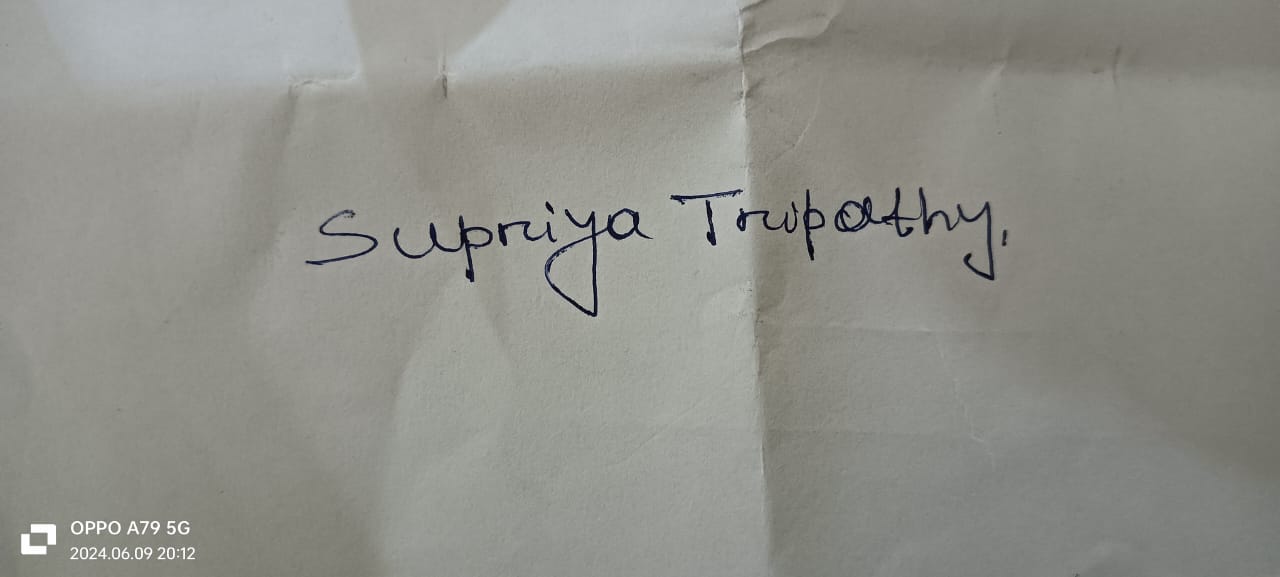 Supriya Tripathy,
OPPO A79 5G
2024.06.09 20:12